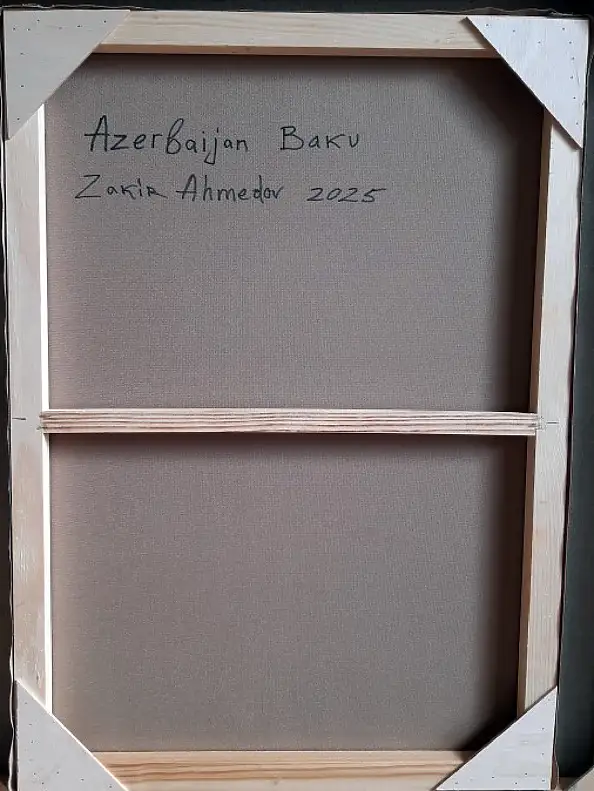 Azerbaijan Baku
Zakir Ahmedov 2025